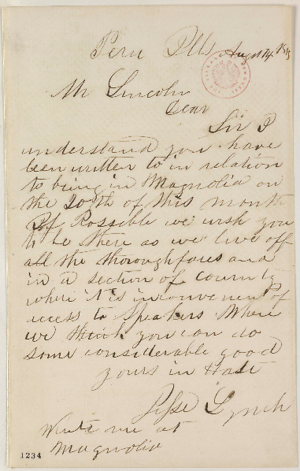 Peru Ills Aug 14 1858
Mr Lincoln
Dear
Sir I
understand you have
been written to in relation
to being in Magnolia on
the 20th of this month
If Possible we wish you
to be there as we live off
all the thoroughfares and
in a section of country
where it is inconvenient of
access to speakers Where
we think you can do
some considerable good
yours in Hast
Jesse Lynch
Write me at
Magnolia
1234